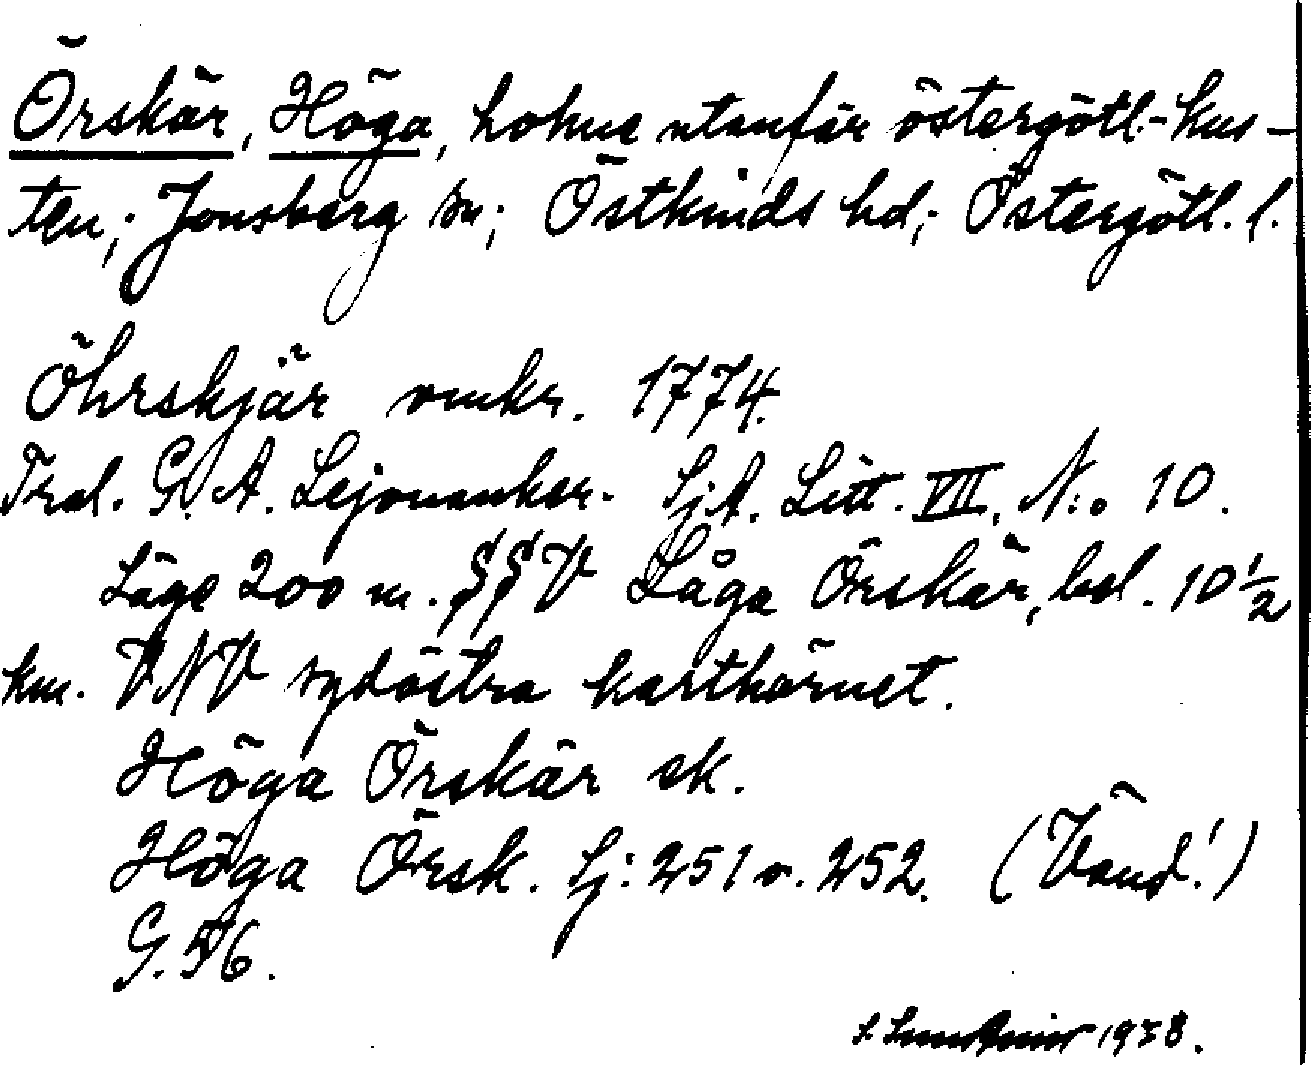 Örskär, Höga, holme utanför östergötl.-kus-
ten; Jonsberg sn; Östkinds hd; Östergötl. l.
Öhrskjär omkr. 1774.
Tral. G. A. Lejonanker. SjA. Litt. VII. N:o 10.
Läge 200 m. SSV Låga Örskär, bel. 10 1/2
km. VNV sydöstra karthörnet.
Höga Örskär ek.
Höga Örsk. Sj: 251 o. 252. (Vänd!)
G. 56.
1938.